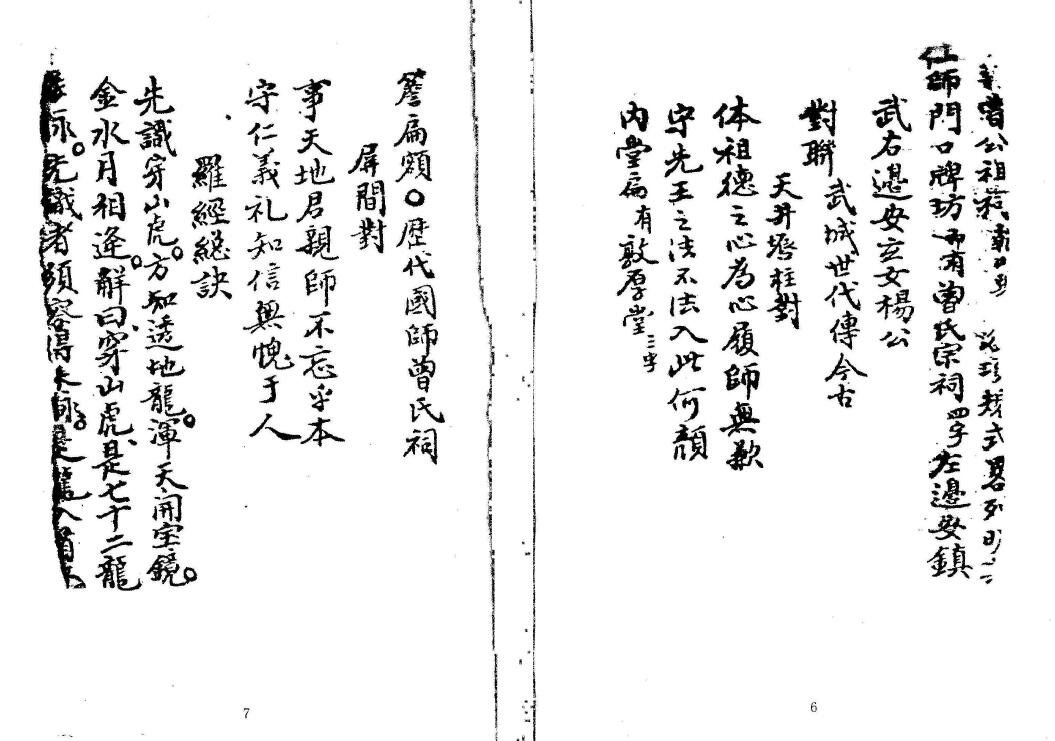 曾公祖 式畧列
仕師門口牌坊 有曾氏宗祠四字左邊安鎮
武右邊安立女楊公
對聯 武城世代傳今古
天井墀柱對
体祖德之心為心履師無歉
守先王之法不法入此何顔
内堂扁有敦厚堂三字
6
簷扁額○歷代國師曾氏祠
屏間對
事天地君親師不忘乎本
守仁義礼知信無愧于人
羅經総訣
先識穿山虎。方知透地龍。渾天開宝鏡。
金水月相逢。解曰、穿山虎、是七十二龍
先識者須
7